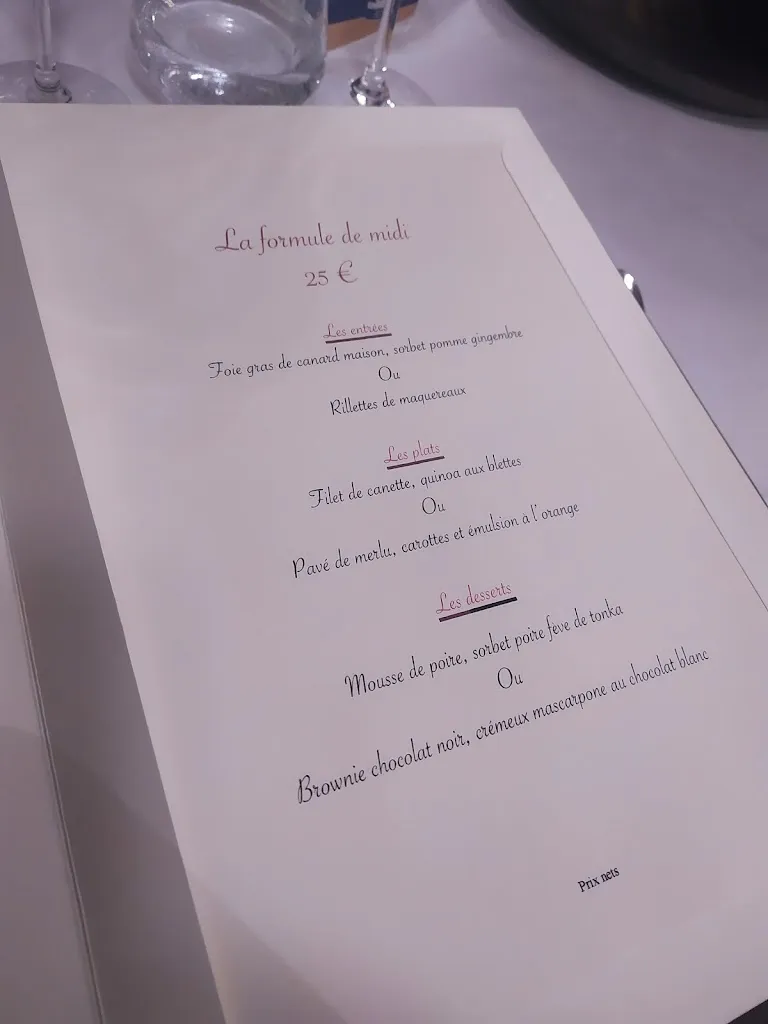 La formule de midi
25 €
Les entrées
Foie gras de canard maison, sorbet pomme gingembre
Ou
Rillettes de maquereaux
Les plats
Filet de canette, quinoa aux blettes
Ou
Pavé de merlu, carottes et émulsion à l'orange
Les desserts
Mousse de poire, sorbet poire fève de tonka
Ou
Brownie chocolat noir, crémeux mascarpone au chocolat blanc
Prix nets